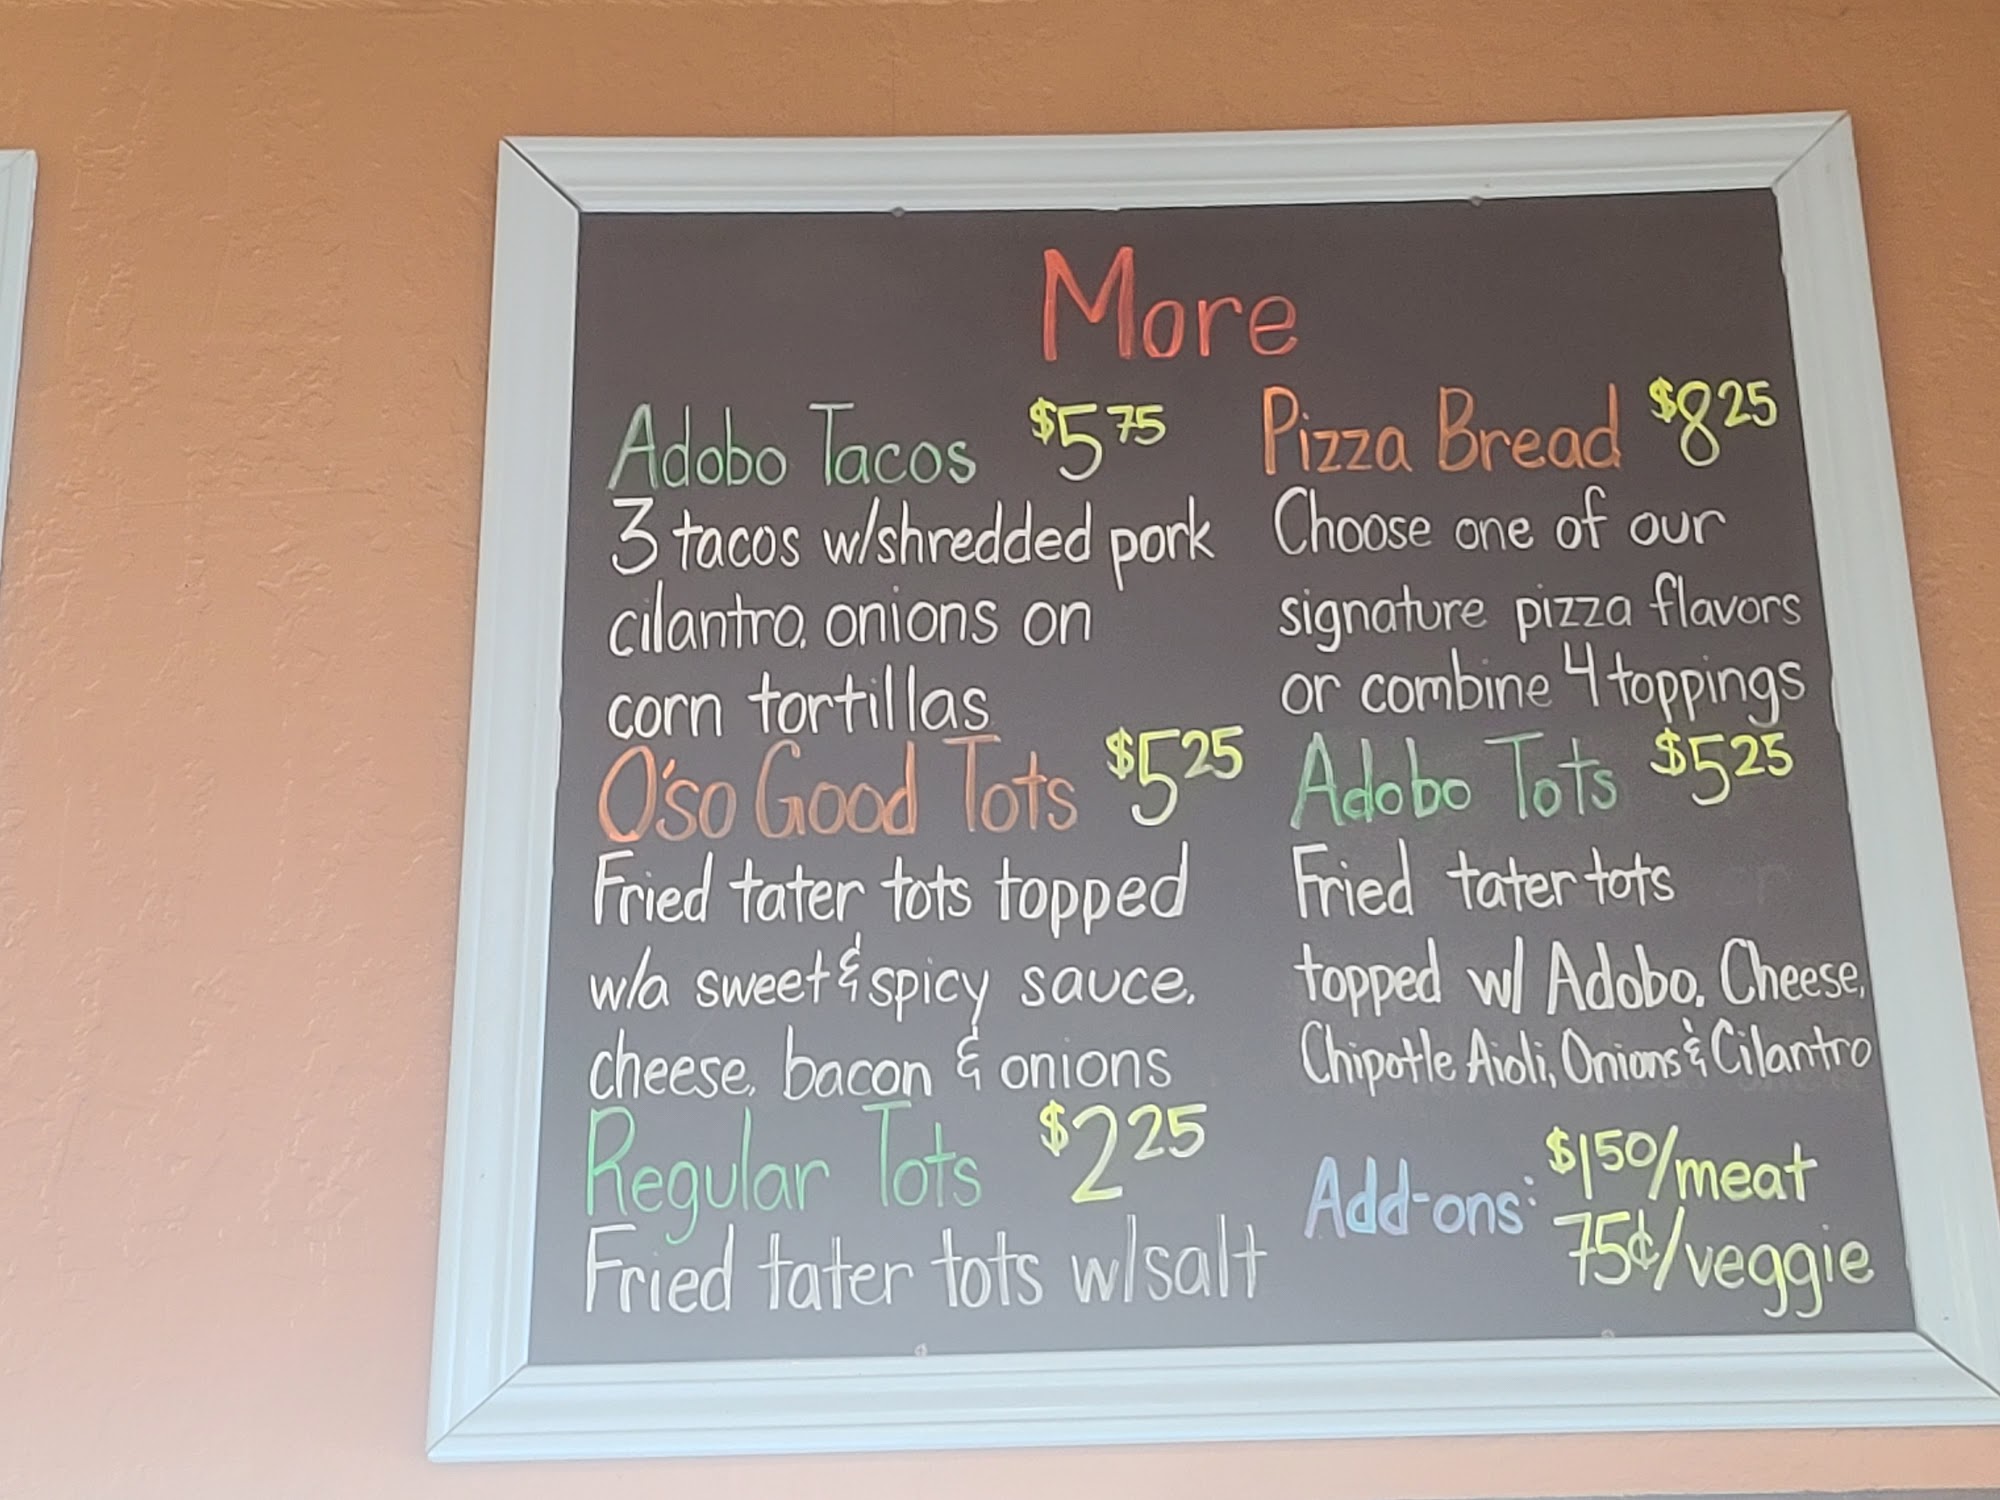 More
Adobo Tacos $5.75
3 tacos w/shredded pork
cilantro, onions on
corn tortillas
O'so Good Tots $5.25
Fried tater tots topped
w/a sweet & spicy sauce,
cheese, bacon & onions
Regular Tots $2.25
Fried tater tots w/salt
Pizza Bread $8.25
Choose one of our
signature pizza flavors
or combine 4 toppings
Adobo Tots $5.25
Fried tater tots
topped w/ Adobo, Cheese,
Chipotle Aioli, Onions & Cilantro
Add-ons: $1.50/meat
75¢/veggie